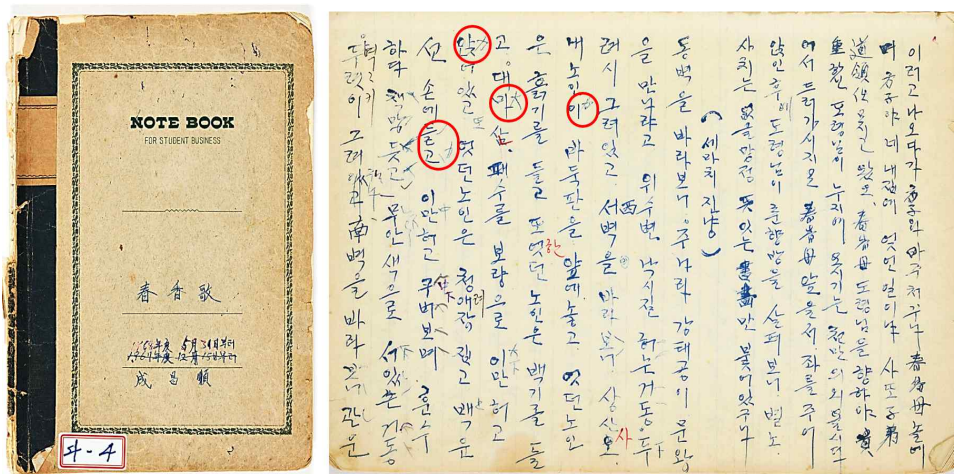 NOTE BOOK
FOR STUDENT BUSINESS
春香歌
成昌順
이러고 나오다가 마주처구나 春香母
네 내집에 엇언 일이냐 사또
道領任 모시고 왔소. 春香母 도령님을 향하야
도령님이 누지에 오시기는 천만 의외올시다
어서 드러가시지요 春香母 앞을 서 좌를 주어
앉인 후에 도령님이 춘향방을 살펴보니 별노
사치는 없을망정 뜻있는 만 붙어있구나
(세마치 진양)
동벽을 바라보니 주나라 강태공이 문왕
을 만나랴고 위수변 낙시질 허는 거동 두
려시 그려있고 서벽을 바라 상산 사
내 노인이 바둑판을 앞에 놓고 엇던 노인
은 흙기를 들고 또 엇던 노인은 백기를 들
고 대마 상 패수를 보랴고 이만허고
앉어있고 또 엇던 노인은 청애장 집고 백우
선 손에 들고 이만허고 구버보며 훈수
하다 책망 듯고 무안색으로 서있는 거동
두렷이 그려있고 南벽을 바라보니 관운